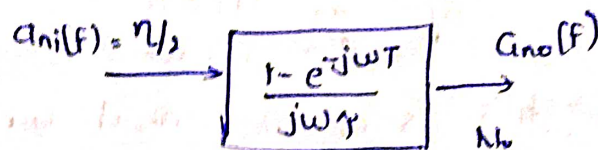 Gni(f) = η/2
1 - e^-jωT
jωτ
Gno(f)
No